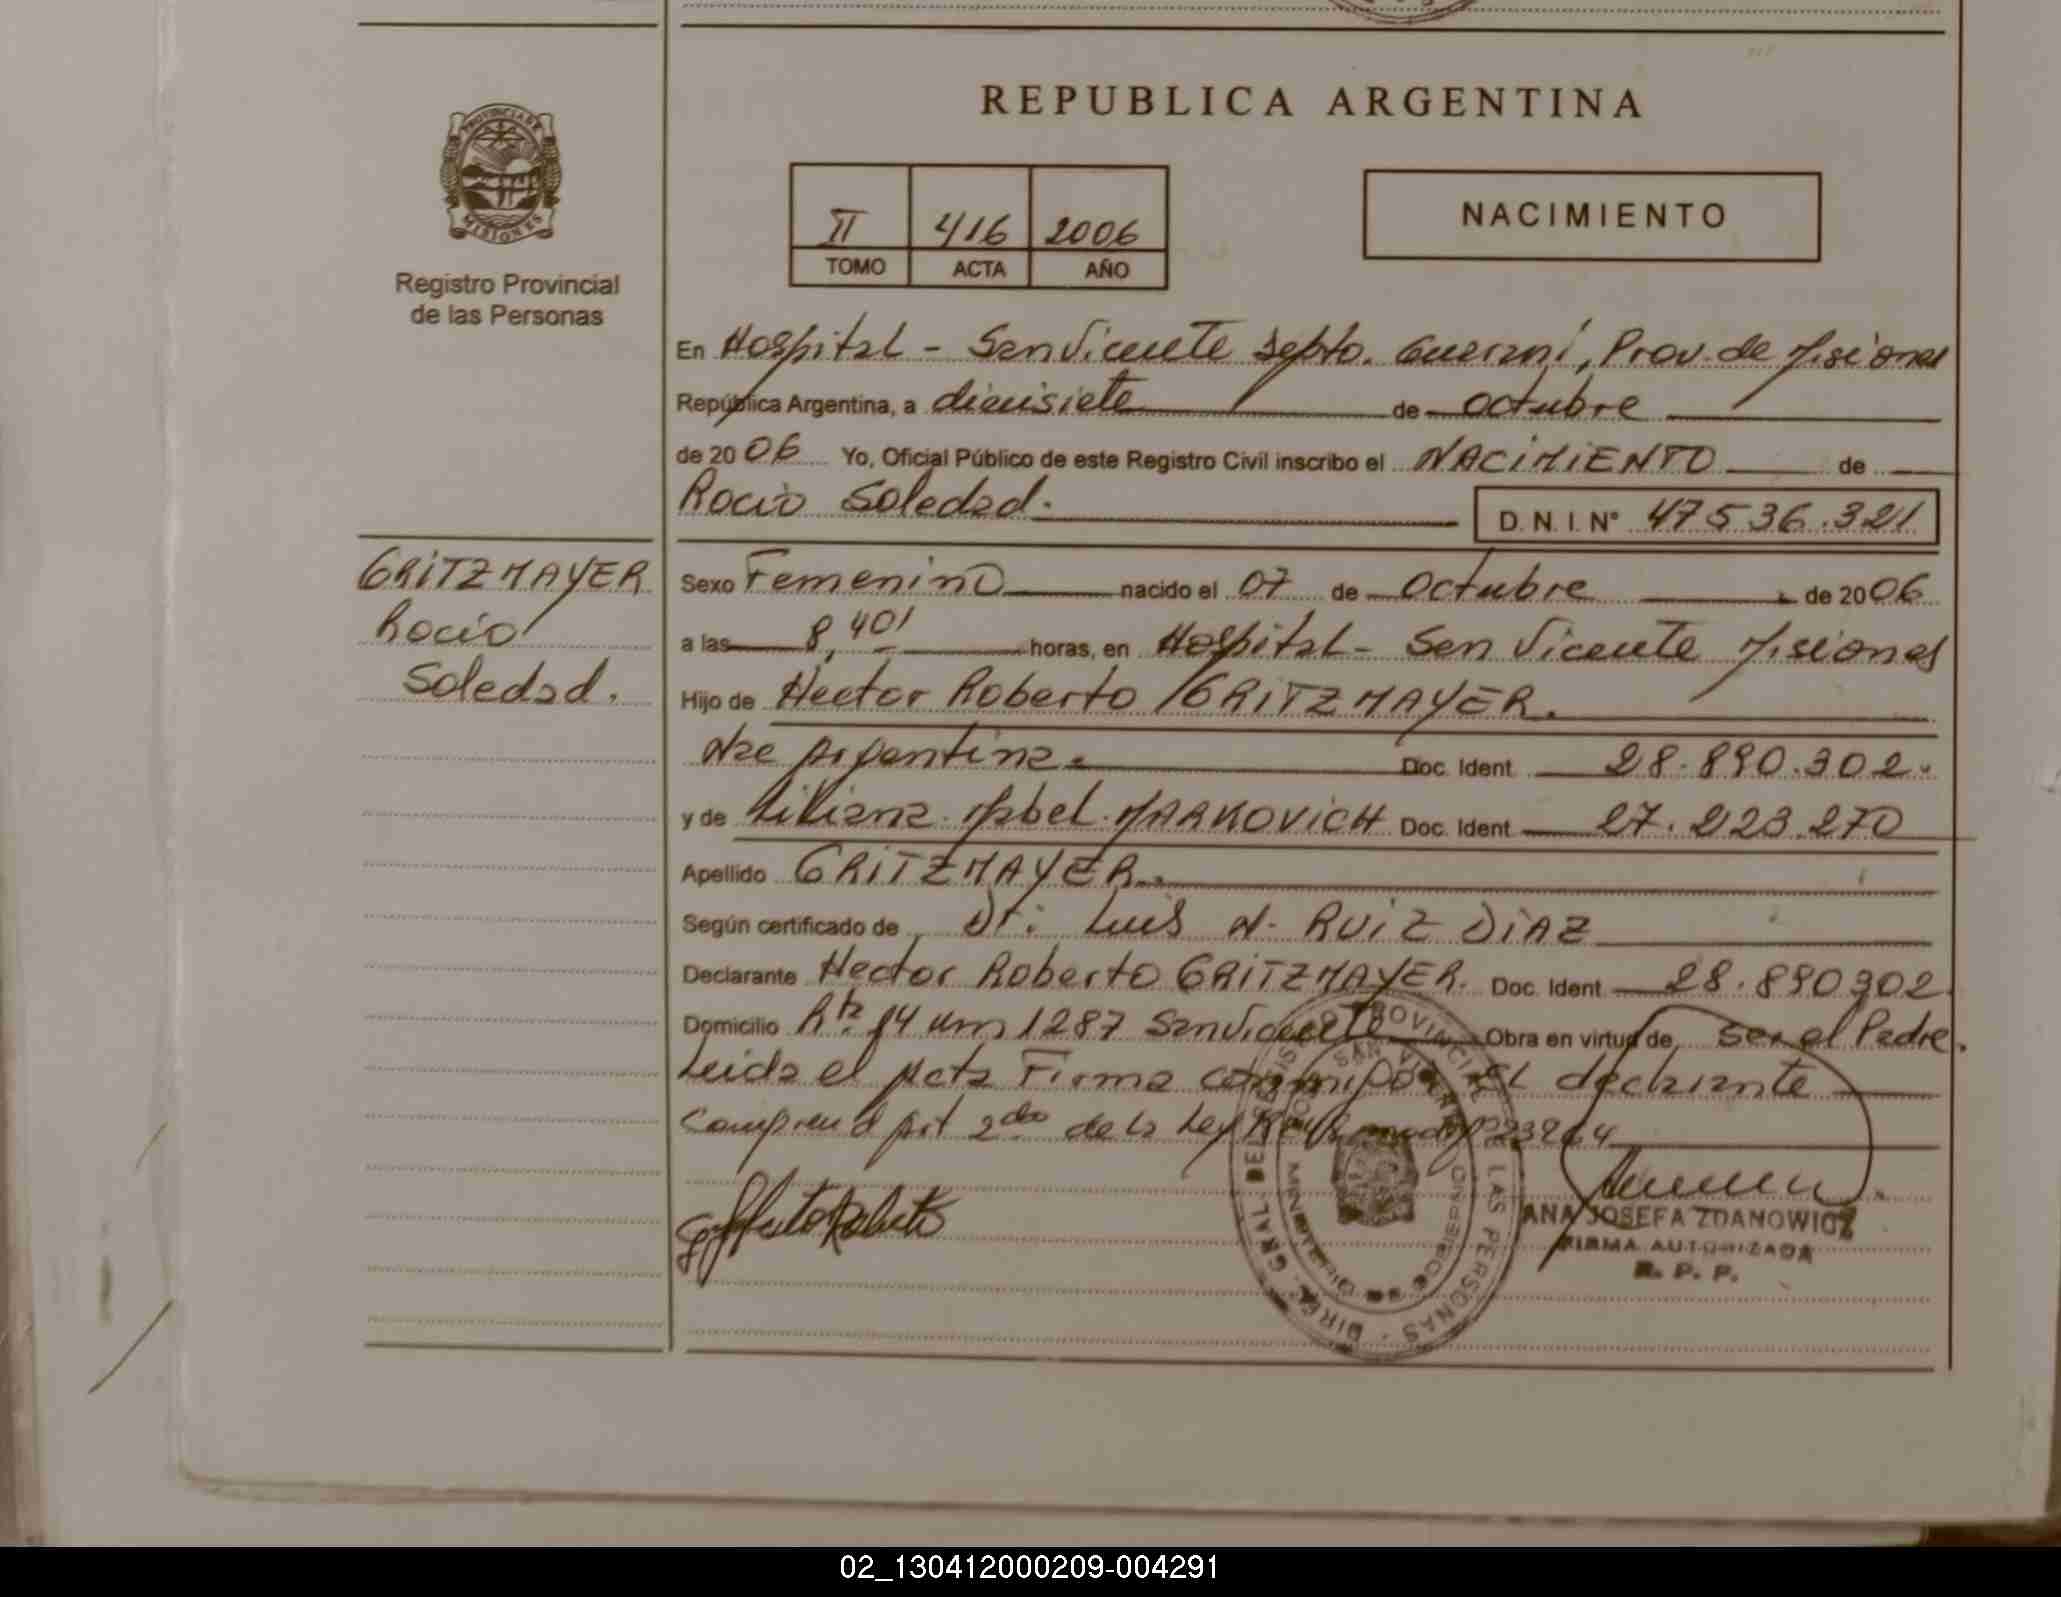 REPUBLICA ARGENTINA
PROVINCIA DE
MISIONES
Registro Provincial
de las Personas
II 416 2006
TOMO ACTA AÑO
NACIMIENTO
En Hospital - San Vicente Depto. Guaraní, Prov. de Misiones
República Argentina, a diecisiete de octubre
de 2006 Yo, Oficial Público de este Registro Civil inscribo el NACIMIENTO de
Rocio Soledad.
D. N. I. Nº 47536.321
GRITZMAYER
Rocio
Soledad.
Sexo Femenino nacido el 07 de octubre de 2006
a las 8,40' horas, en Hospital - San Vicente Misiones
Hijo de Hector Roberto GRITZMAYER.
Nac Argentina. Doc. Ident 28.890.302.
y de Liliana Mabel MARKOVICH Doc. Ident 27.223.270
Apellido GRITZMAYER.
Según certificado de Dr: Luis N. RUIZ DIAZ
Declarante Hector Roberto GRITZMAYER. Doc. Ident 28.890302
Domicilio Rta 14 Km 1287 San Vicente Obra en virtud de ser el Padre.
Leida el Acta Firma conmigo El declarante
Comprend Art 2do de la Ley 23264
DIRE. GRAL. DEL REGISTRO PROVINCIAL DE LAS PERSONAS
ANA JOSEFA ZDANOWICZ
FIRMA AUTORIZADA
R. P. P.
02_130412000209-004291